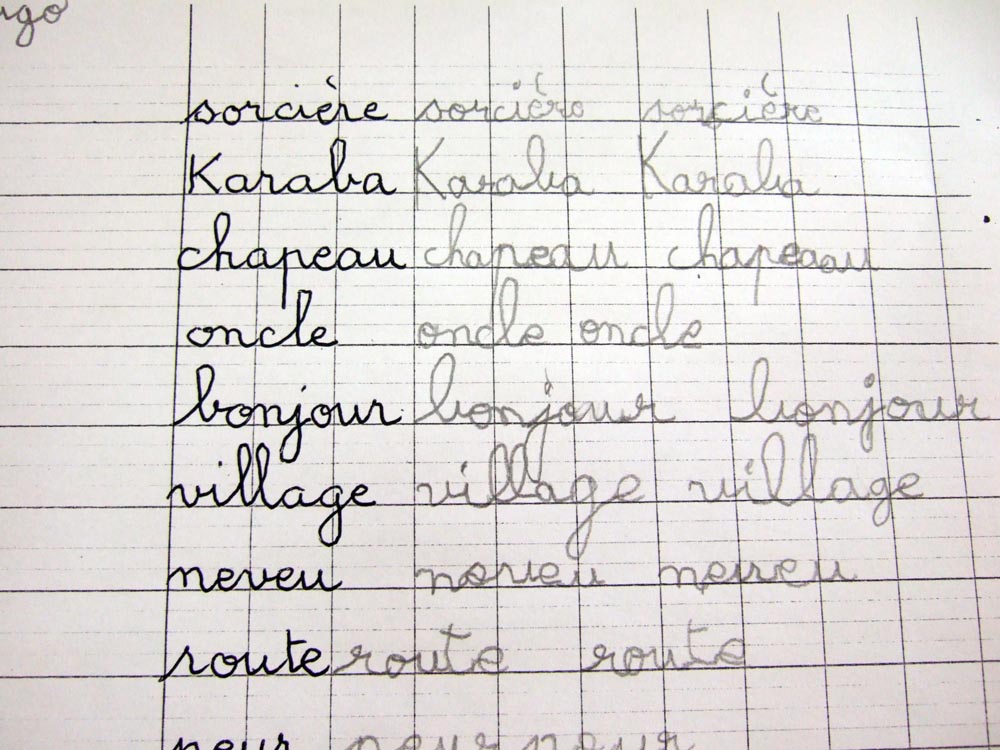 sorcière sorcière sorcière
Karaba Karaba Karaba
chapeau chapeau chapeaau
oncle oncle oncle
bonjour bonjour bonjour
village village village
neveu neveu neveu
route route route
peur peur peur